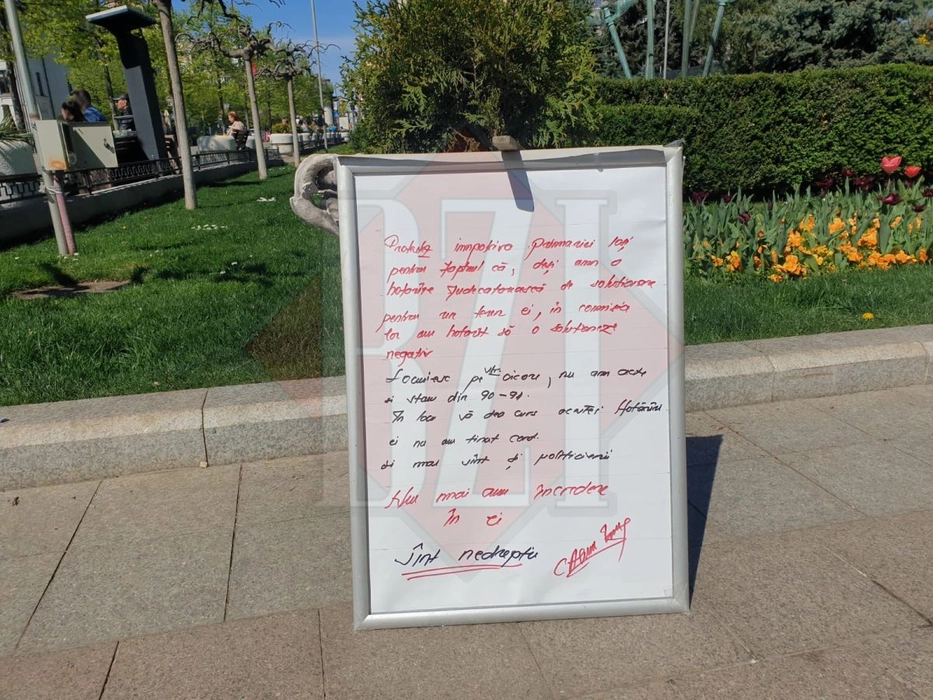 Protestez împotriva Primăriei Iași
pentru faptul că, deși am o
hotărîre Judecatorească de soluționare
pentru un teren ei, în comisia
lor au hotarît să o soluționeze
negativ
Locuiesc pe str. , nu am acte
și stau din 90-91.
În loc să dea curs acestei Hotărîri
ei nu au ținut cont.
și mai sînt și politicieni
Nu mai am încredere
în ei
Sînt nedrepți
BZI